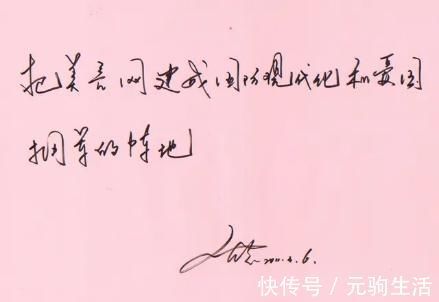 把美言网建成国防现代化和爱国
拥军的阵地
2011.4.6.
快传号/元驹生活